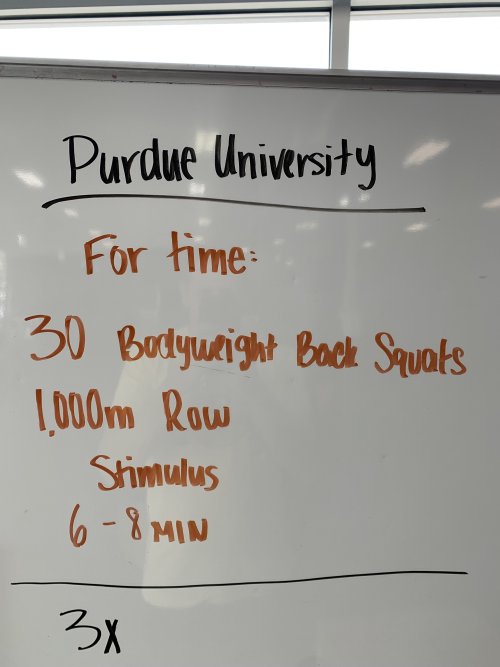 Purdue University
For time:
30 Bodyweight Back Squats
1,000m Row
Stimulus
6-8 MIN
3x